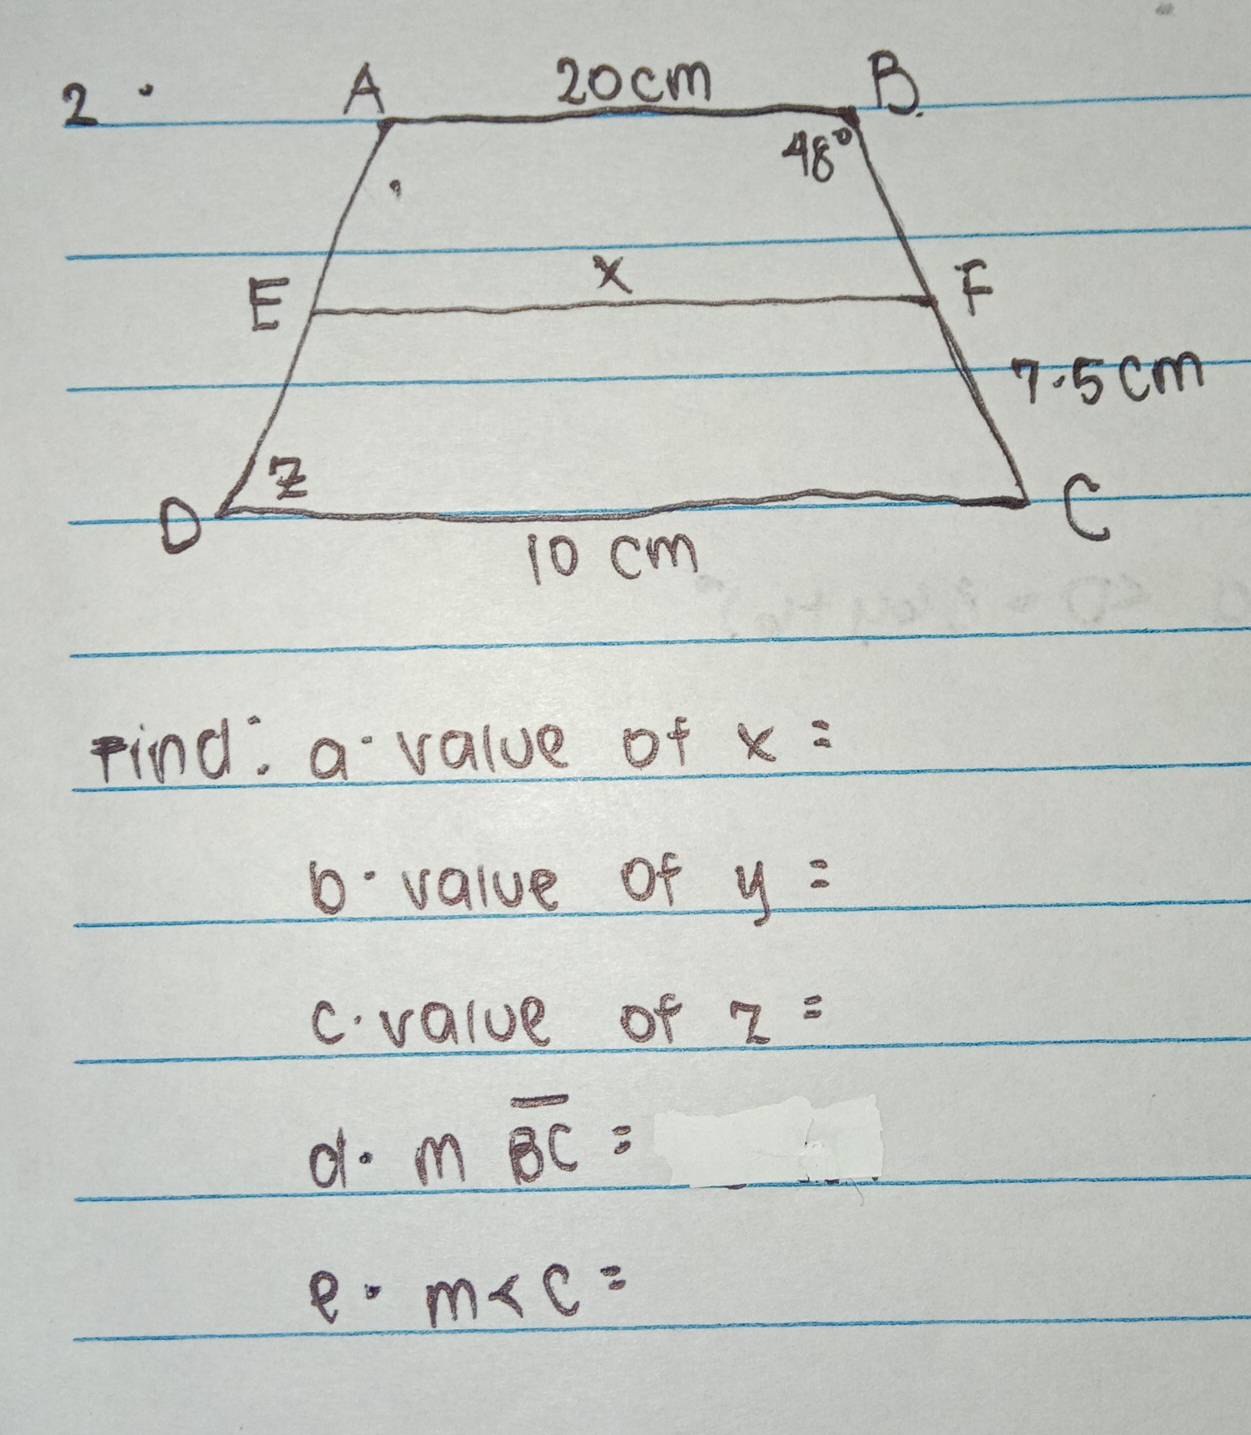 2.
A 20cm B.
48°
E x F
7.5cm
z
D C
10 cm
Find: a. value of x =
b. value of y =
c. value of z =
d. m BC =
e. m< C =